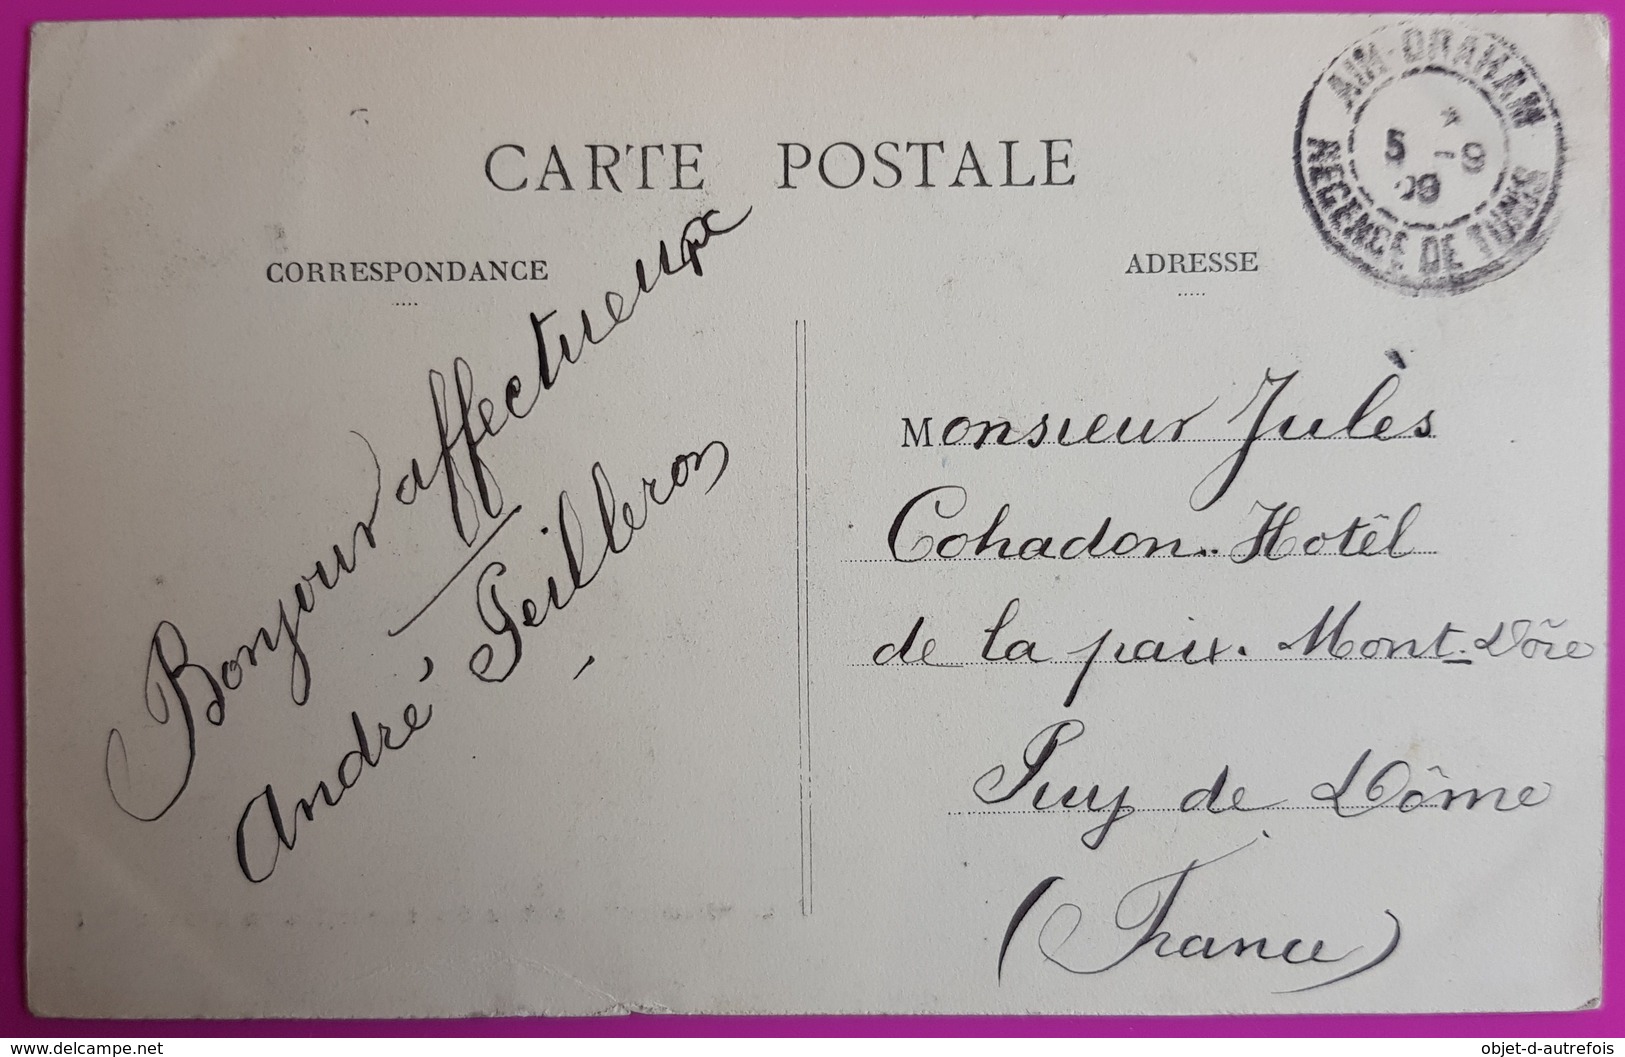 CARTE POSTALE
CORRESPONDANCE
ADRESSE
AIN-DRAHAM
5 -9
09
REGENCE DE TUNIS
Bonjour affectueux
André Peilleron
Monsieur Julès
Cohadon. Hotêl
de la paix. Mont-Dôre
Puy de Dôme
(France)
https://www.delcampe.net
objet-d-autrefois